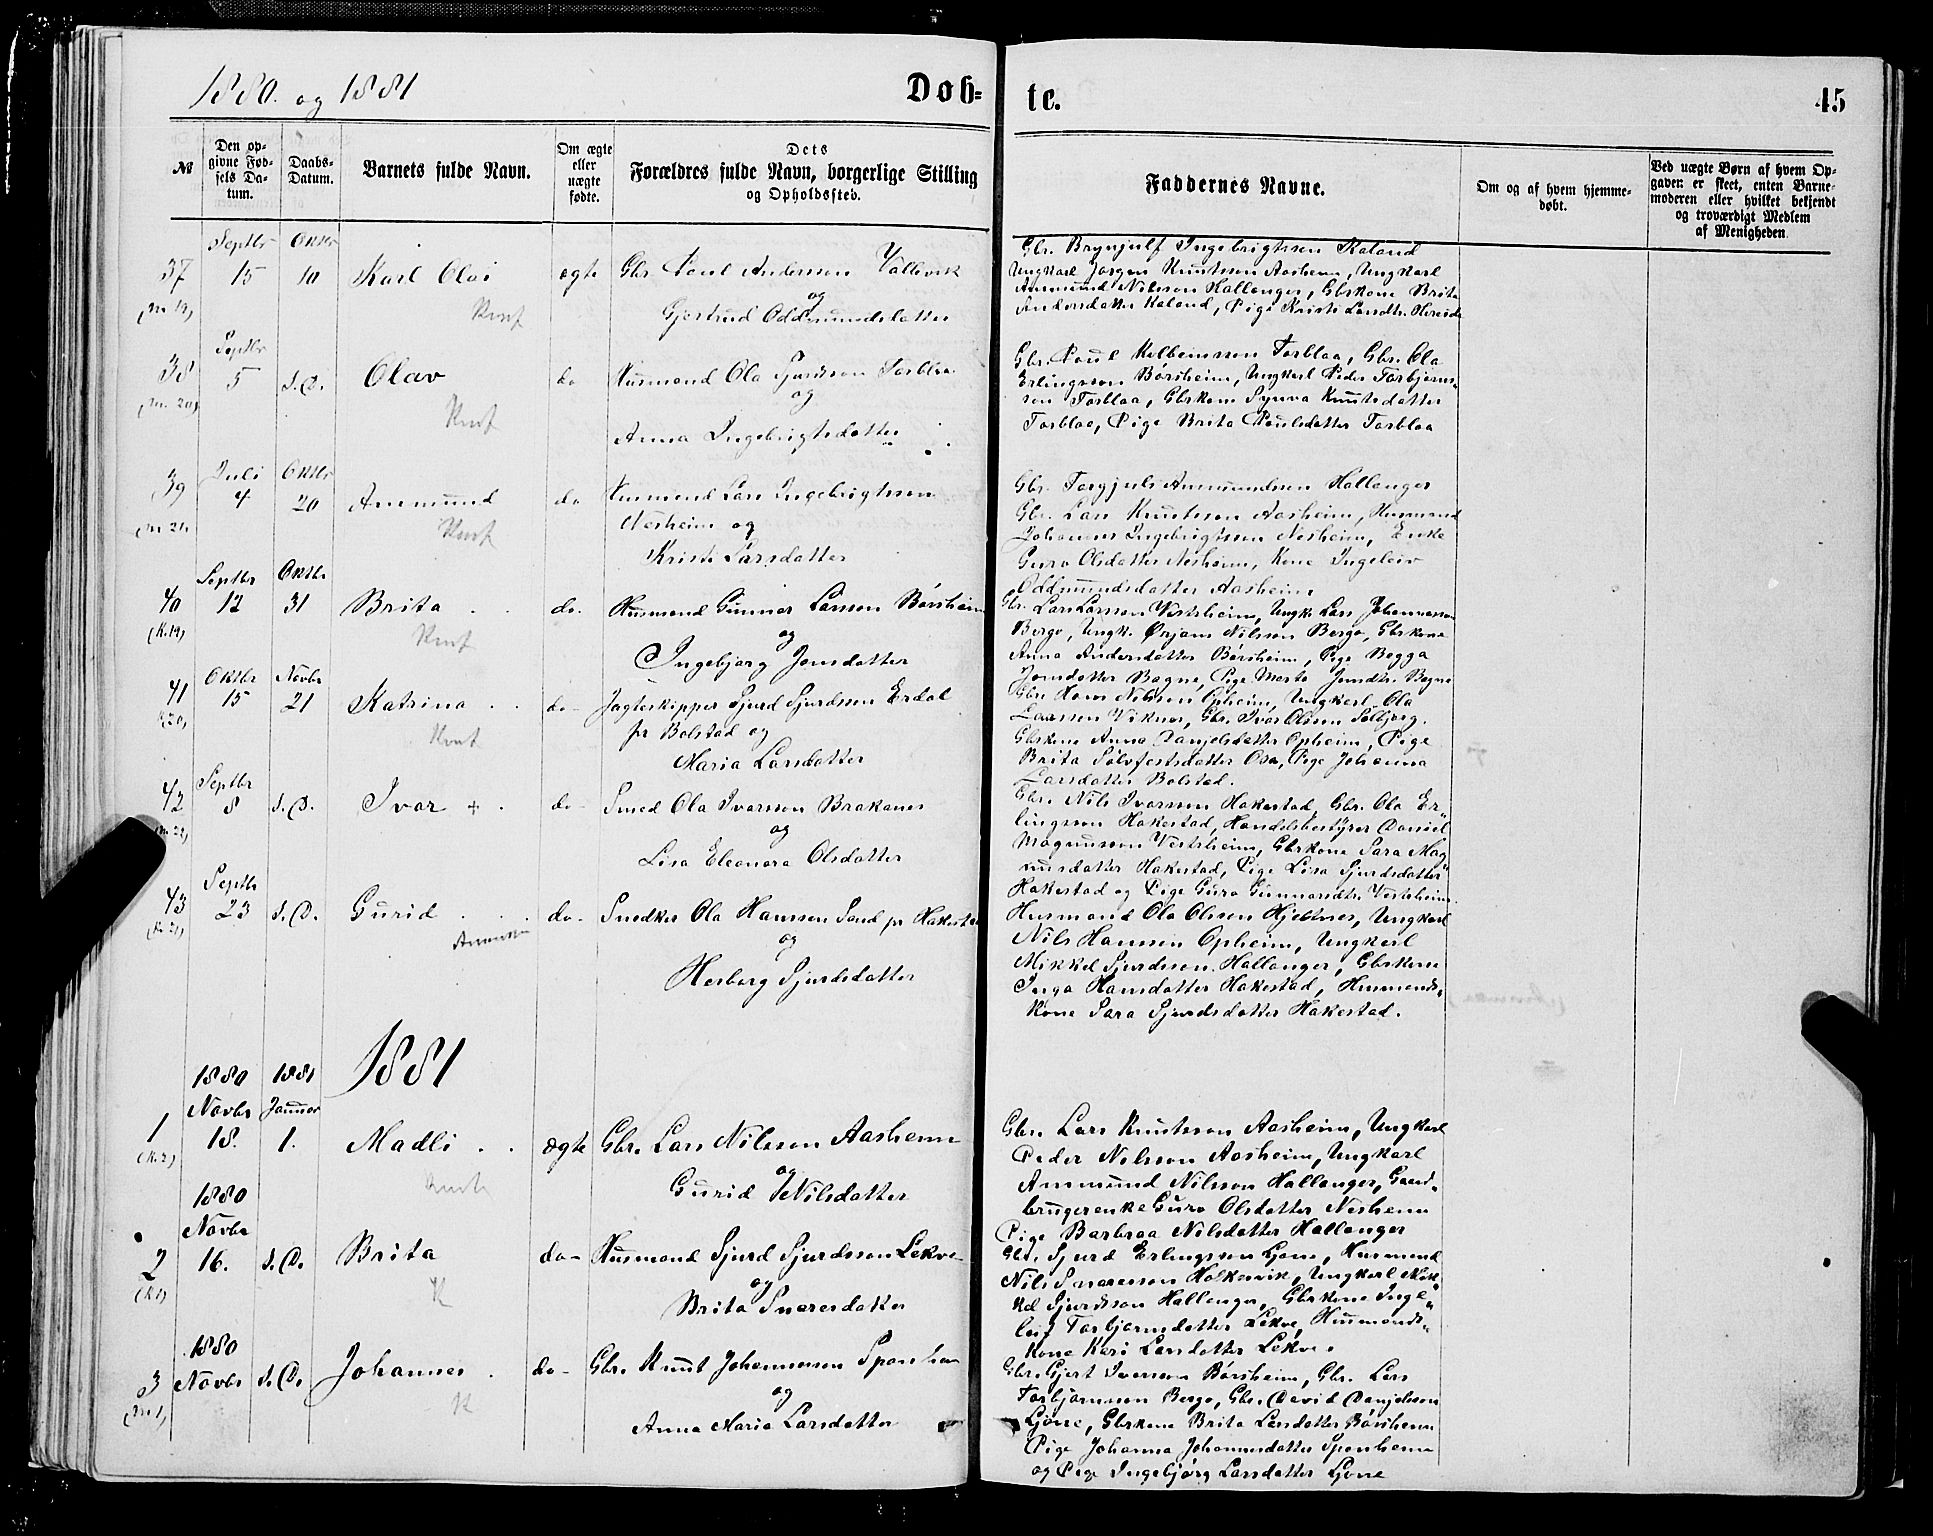 1880. og 1881
Døb-
te.
45
№
Den op-
givne Fød-
sels Da-
tum.
Daabs-
Datum.
Barnets fulde Navn.
Om ægte
eller
uægte
fødte.
Dets
Forældres fulde Navn, borgerlige Stilling
og Opholdssted.
Faddernes Navne.
Om og af hvem hjemme-
døbt.
Ved uægte Børn af hvem Op-
gaven er skeet, enten Barne-
moderen eller hvilket bekjendt
og troværdigt Medlem
af Menigheden.
37
(M. 19)
Septbr
15
Oktbr
10
Karl Olai
ægte
Gbr. Poul Anderson Vallevik
og
Gjertrud Oddmundsdatter
Gbr. Brynjulf Ingebrigtsson Kaland
Ungkarl Jørgen Knutsson Aasheim, Ungkarl
Ammund Nilsson Hallanger, Gbrkone Brita
Andersdatter Kaland, Pige Kristi Larsdtr.
38
(M. 20)
Septbr
5
s.D.
Olav
do
Husmand Ola Sjurdsson Torblaa
og
Anna Ingebrigtsdatter
Gbr. Poul Kolbeinsson Torblaa, Gbr. Ola
Erlingsson Børsheim, Ungkarl Peder Torbjørns-
son Torblaa, Gbrkone Synva Knutsdatter
Torblaa, Pige Brita Poulsdatter Torblaa
39
(M. 21)
Juli
4
Oktbr
20
Ammund
do
Husmand Lars Ingebrigtsson
Nesheim og
Kristi Larsdatter
Gbr. Torgjuls Ammundsson Hallanger
Gbr. Lars Knutsson Aasheim, Husmand
Johannes Ingebrigtsson Nesheim, Enke
Guro Olsdatter Nesheim, Kone Ingeleiv
Oddmundsdatter Aasheim
40
(K. 19)
Septbr
12
Oktbr
31
Brita
do.
Husmand Gunnar Larsson Børsheim
og
Ingebjørg Jonsdatter
Gbr. Lars Larsson Vestrheim, Ungk. Lars Johannesson
Berge, Ungk. Ørjans Nilsson Berge, Gbrkone
Anna Andersdatter Børsheim, Pige Bogga
Jonsdatter Bagne, Pige Marta Jonsdtr. Bagne
41
(K. 20)
Oktbr
15
Novbr
21
Katrina
do
Jagteskipper Sjurd Sjurdsson Erdal
pr Bolstad og
Maria Larsdatter
Gbr. Hans Nilsson Opheim, Ungkarl Ola
Larsson Viknes, Gbr. Ivar Olsson Solbjørg.
Gbrkone Anna Danjelsdatter Opheim, Pige
Brita Sølvfestsdatter Osa, Pige Johanna
Larsdatter Bolstad.
42
(M. 22)
Septbr
8
s.D.
Ivar +
do
Smed Ola Ivarsson Brakanes
og
Lisa Eleonora Olsdatter
Gbr. Nils Ivarsson Hakestad, Gbr. Ola Er-
lingsson Hakestad, Handelsbestyrer Daniel
Magnusson Vestrheim, Gbrkone Sara Mag-
nusdatter Hakestad, Pige Lisa Sjurdsdatter
Hakestad og Pige Guro Gunnarsdtr. Vestrheim.
43
(K. 21)
Septbr
23
s.D.
Gurid
do
Snedker Ola Hansson Sand pr Hakestad
og
Herborg Sjurdsdatter
Husmand Ola Olsson Hjeltnes, Ungkarl
Nils Hansson Opheim, Ungkarl
Mikkel Sjurdsson Hallanger, Gbrkone
Inga Hansdatter Hakestad, Husmands-
kone Sara Sjurdsdatter Hakestad.
1881
1880
Novbr
1881
Januar
1
(K. 2)
18.
1.
Madli
ægte
Gbr. Lars Nilsson Aasheim
og
Gurid Nilsdatter
Gbr. Lars Knutsson Aasheim, Ungkarl
Peder Nilsson Aasheim, Ungkarl
Ammund Nilsson Hallanger, Gaard-
brugerenke Guro Olsdatter Nesheim
Pige Barbraa Nilsdatter Hallanger
1880
Novbr
2
(K. 1)
16.
s.D.
Brita
do
Husmand Sjurd Sjurdsson Lekve
og
Brita Snaresdatter
Gbr. Sjurd Erlingsson Gone, Husmand
Nils Snaresson Holkesvik, Ungkarl Mik-
kel Sjurdsson Hallanger, Gbrkone Inge-
leif Torbjørnsdatter Lekve, Husmands-
kone Kari Larsdatter Lekve.
1880
3
(M. 1)
Novbr
s.D.
Johannes
do
Gbr. Knut Johannesson Sponheim
og
Anna Maria Larsdatter
Gbr. Gjert Iversson Børsheim, Gbr. Lars
Torbjørnsson Berge, Gbr. David Danjelsson
Ljone, Gbrkone Brita Larsdatter Børsheim
Pige Johanna Johannesdatter Sponheim
og Pige Ingebjørg Larsdatter Ljone